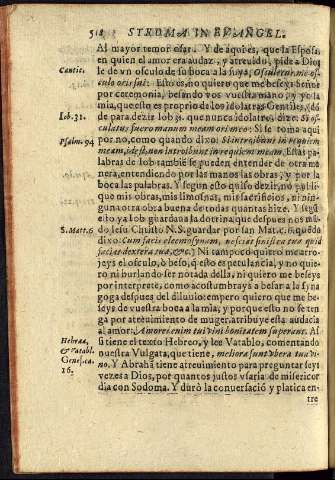 518 STROMA IN EVANGEL.
Al mayor temor osar. Y de aqui es, que la Esposa,
en quien el amor era audaz, y atreuido, pide a Dios
Cantic. le dè vn osculo de su boca a la suya, Osculetur me oscu
lo oris sui: Esto es, no quiero que me beseys Señor
por ceremonia, besando vos vuestra mano, y yo la
mia, que esto es proprio de los idolatras Gentiles, (dõ
Iob.31. de para dezir Iob 31. que nunca idolatrò, dize: Si os-
culatus sucro manum meam ori meo: Si se toma aqui
Psalm.94 por no, como quando dixo: Si introibunt in requiem
meam, id est, non introibunt in requiem meam. Estas pa-
labras de Iob tambiē se pueden entender de otra ma
nera, entendiendo por las manos las obras, y por la
boca las palabras. Y segun esto quiso dezir, no publi-
què mis obras, mis limosnas, mis sacrificios, ni nin-
gun otra obra buena de todas quantas hize. Y segũ
esto ya Iob guardaua la dotrina que despues nos mã
S.Matt.6 do Iesu Christo N.S. guardar por san Mat. c. 6. quãdo
dixo: Cum facis eleemosynam, nesciat sinistra tua quid
faciat dextera tua, &c.) Ni tampoco quiero me arro-
jeys el osculo, ò beso, q̃ esto es petulancia, y no quie-
ro ni burlando ser notada della, ni quiero me beseys
por interprete, como acostumbrays a besar a la syna
goga despues del diluuio: empero quiero que me be-
seys de vuestra boca a la mia, y porque esto no se ten
ga por atreuimiento de muger, atribuyese esta audacia
al amor: Amores enim tui vini bonitatem superant. As-
Hebræa, ti tiene el texto Hebreo, y lee Vatablo, comentando
& Vatabl. nuestra Vulgata, que tiene, meliora sunt vbera tua vi-
Genes.ca. no. Y Abrahã tiene atreuimiento para preguntar seys
16. vezes a Dios, por quantos justos vsaria de misericor
dia con Sodoma. Y durò la conuersaciò y platica en-
tre